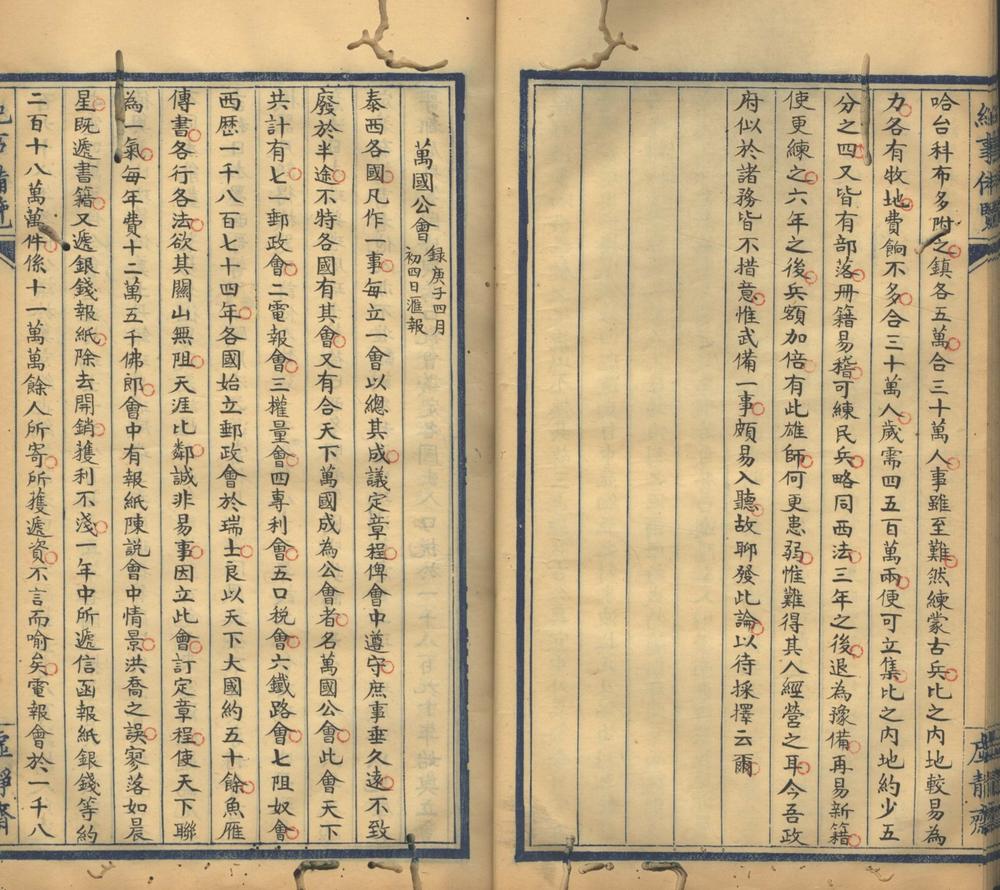 哈台科布多附之鎮各五萬合三十萬人事雖至難然練蒙古兵比之內地較易為
力各有牧地費餉不多合三十萬人歲需四五百萬兩便可立集比之內地約少五
分之四又皆有部落冊籍易稽可練民兵略同西法三年之後退為豫備再易新籍
使更練之六年之後兵額加倍有此雄師何更患弱惟難得其人經營之耳今吾政
府似於諸務皆不措意惟武備一事頗易入聽故聊發此論以待採擇云爾
萬國公會 錄庚子四月
初四日滙報
泰西各國凡作一事每立一會以總其成議定章程俾會中遵守庶事垂久遠不致
廢於半途不特各國有其會又有合天下萬國成為公會者名萬國公會此會天下
共計有七一郵政會二電報會三權量會四專利會五口稅會六鐵路會七阻奴會
西歷一千八百七十四年各國始立郵政會於瑞士良以天下大國約五十餘魚雁
傳書各行各法欲其關山無阻天涯比鄰誠非易事因立此會訂定章程使天下聯
為一氣每年費十二萬五千佛郎會中有報紙陳說會中情景洪喬之誤寥落如晨
星既遞書籍又遞銀錢報紙除去開銷獲利不淺一年中所遞信函報紙銀錢等約
二百十八萬萬件係十一萬萬餘人所寄所獲遞資不言而喻矣電報會於一千八